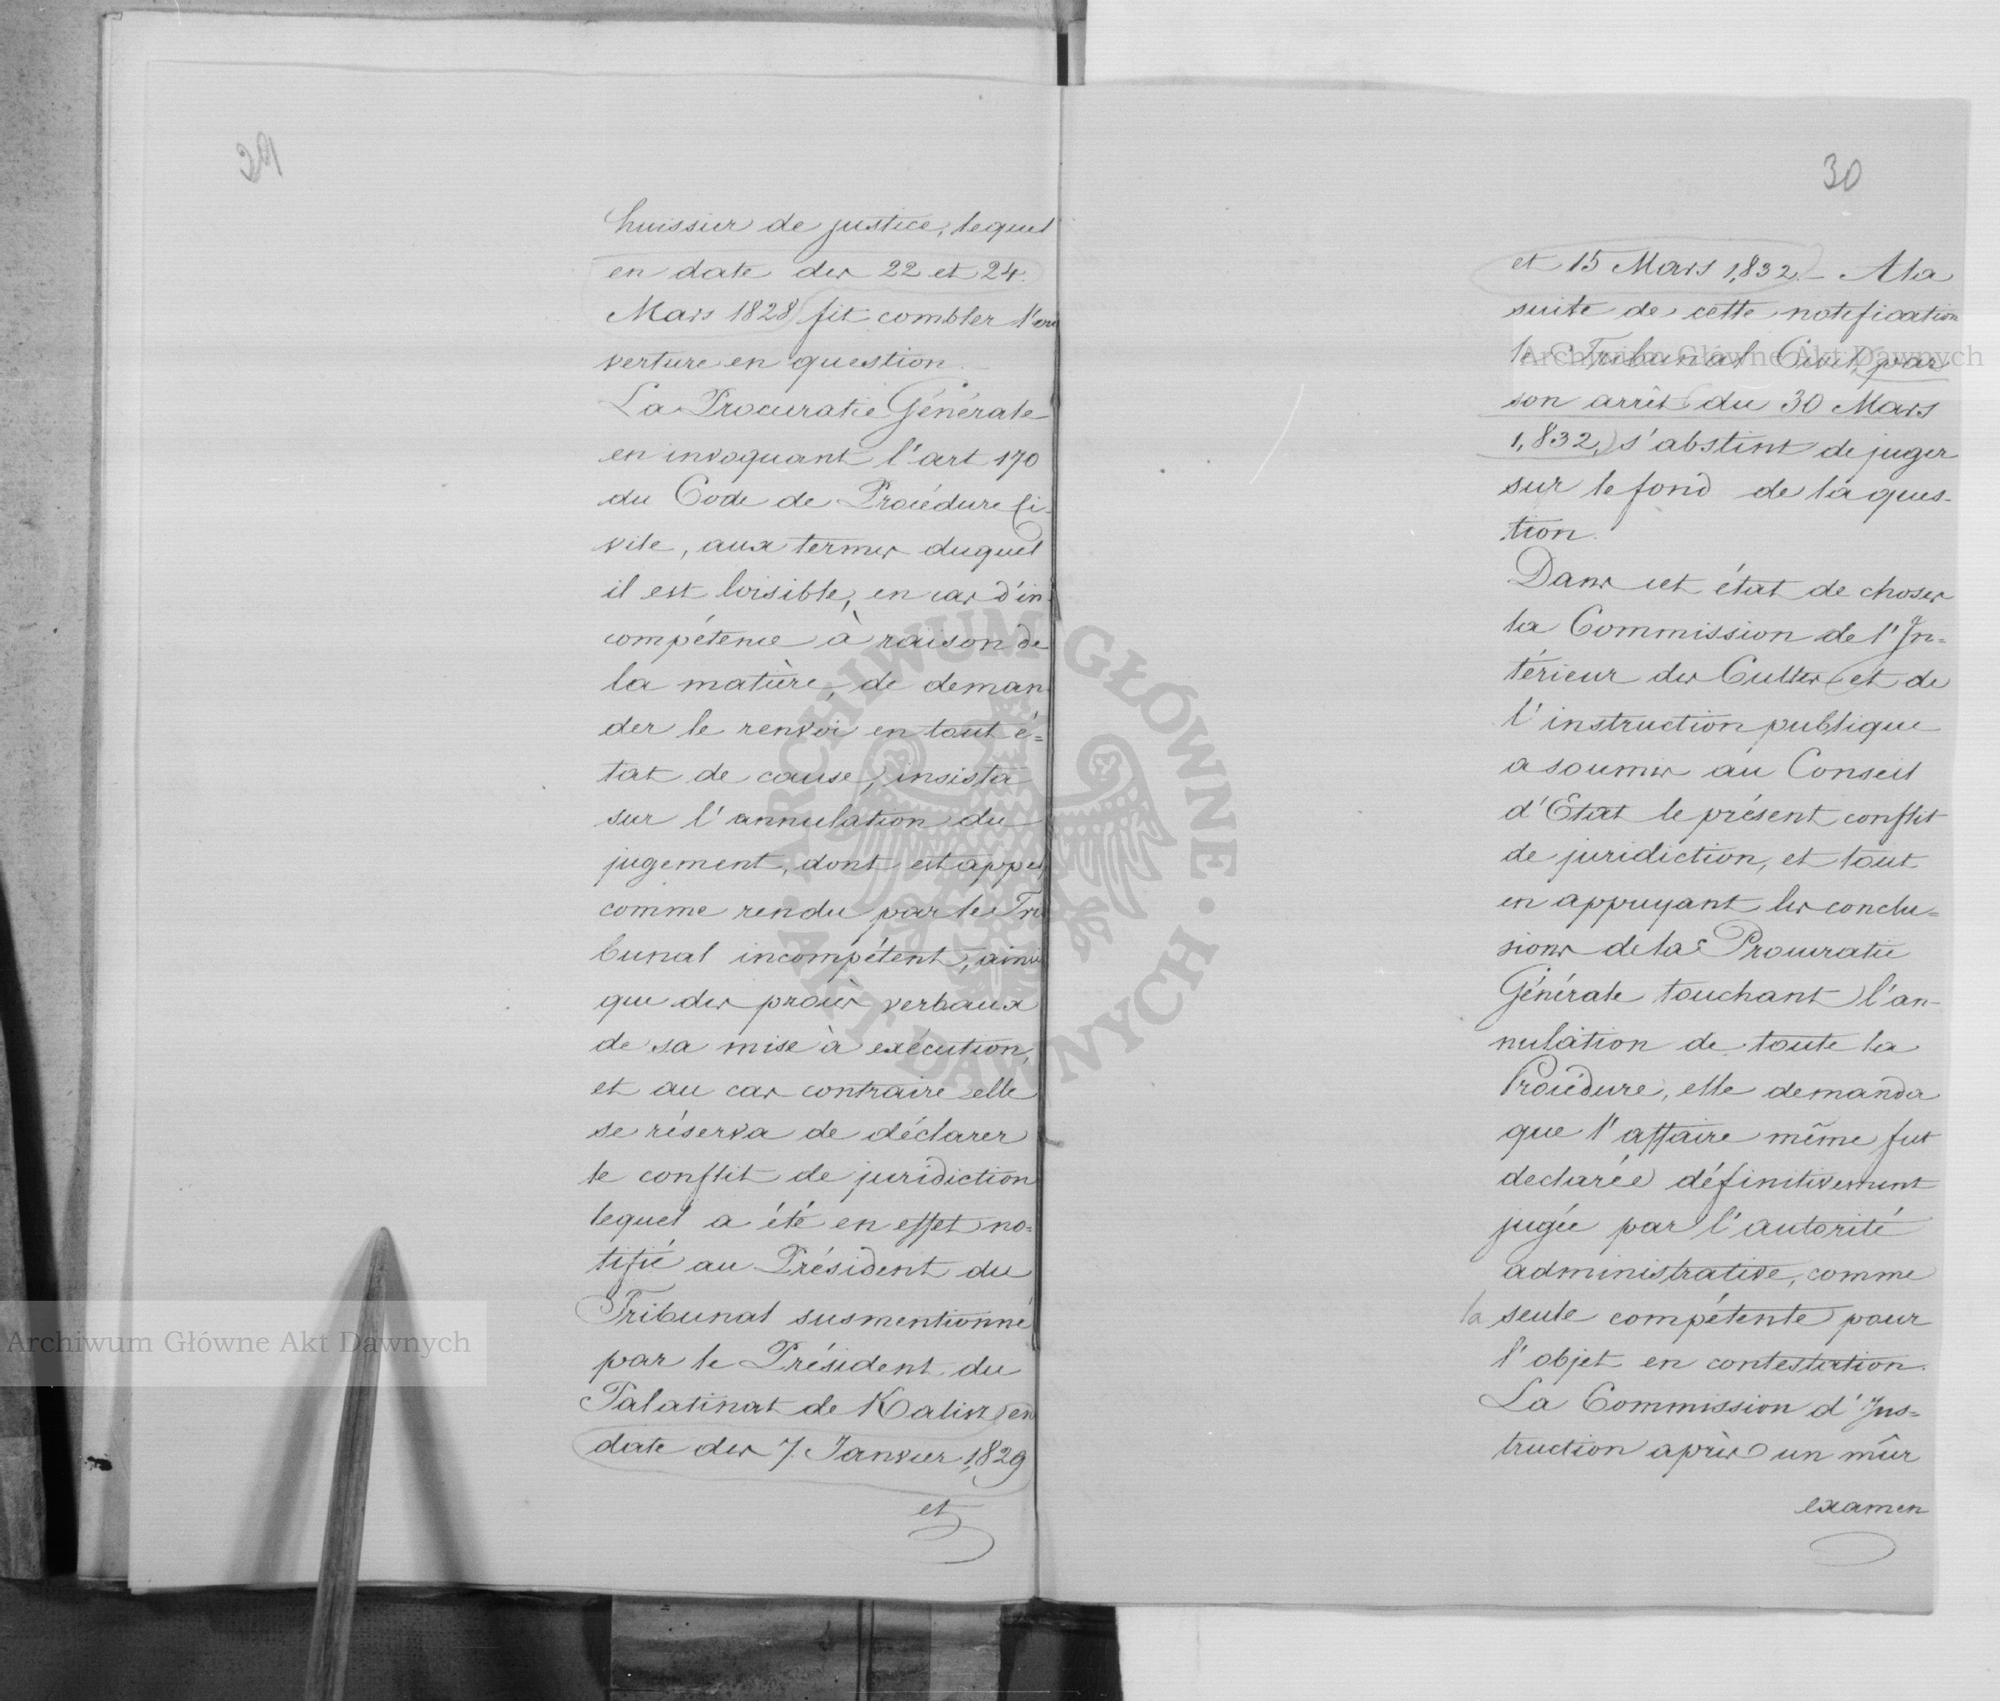 29
huissier de justice, lequel
en date des 22 et 24.
Mars 1828 fit combler l'ou
verture en question.
La Procuratie Générale
en invoquant l'art 170
du Code de Procédure Ci-
vile, aux termes duquel
il est loisible, en cas d'in
compétence à raison de
la matière, de deman-
der le renvoi en tout é=
tat de cause, insista
sur l'annulation du
jugement, dont est appel,
comme rendu par le Tri
bunal incompétent, ainsi
que des procès verbaux
de sa mise à exécution,
et au cas contraire elle
se réserva de déclarer
le conflit de juridiction
lequel a été en effet no=
tifié au Président du
Tribunal susmentionné
par le Président du
Palatinat de Kalisz en
date des 7. Janvier 1,829
et
30
et 15 Mars 1,832. - A la
suite de cette notification
le Tribunal Civil, par
son arrêt du 30 Mars
1,832, s'abstint de juger
sur le fond de la ques-
tion.
Dans cet état de choses
la Commission de l'In=
térieur des Cultes et de
l'instruction publique
a soumis au Conseil
d'Etat le présent conflit
de juridiction, et tout
en appuyant les conclu=
sions de la Procuratie
Générale touchant l'an-
nulation de toute la
Procédure, elle demanda
que l'affaire même fut
declarée définitivement
jugée par l'autorité
administrative, comme
la seule compétente pour
l'objet en contestation.
La Commission d'Jns=
truction après un mûr
examen
Archiwum Główne Akt Dawnych
Archiwum Główne Akt Dawnych
ARCHIWUM GŁÓWNE · AKT DAWNYCH ·